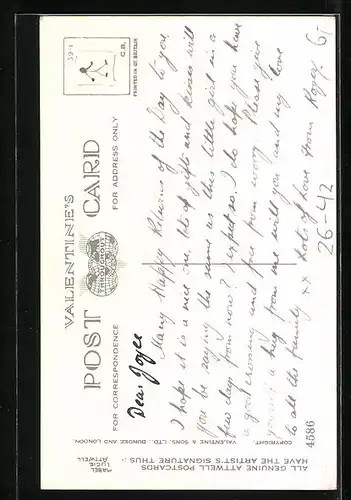 VALENTINE'S
POST CARD
THROUGHOUT
FOR CORRESPONDENCE
FOR ADDRESS ONLY
G.B.
PRINTED IN GT. BRITAIN
Dear Joyce
Many Happy Returns of the Day to you.
I hope it is a nice one, lots of gifts and kisses will
you be saying the same as this little girl in a
few days from now? I expect so. I do hope you have
a good crossing and free from worry. Please give
yourself a hug from me will you and my love
to all the family xx Lots of love from
26-42
4586
COPYRIGHT.
VALENTINE & SONS, LTD., DUNDEE AND LONDON.
ALL GENUINE ATTWELL POSTCARDS
HAVE THE ARTIST'S SIGNATURE THUS :-
MABEL
LUCIE
ATTWELL